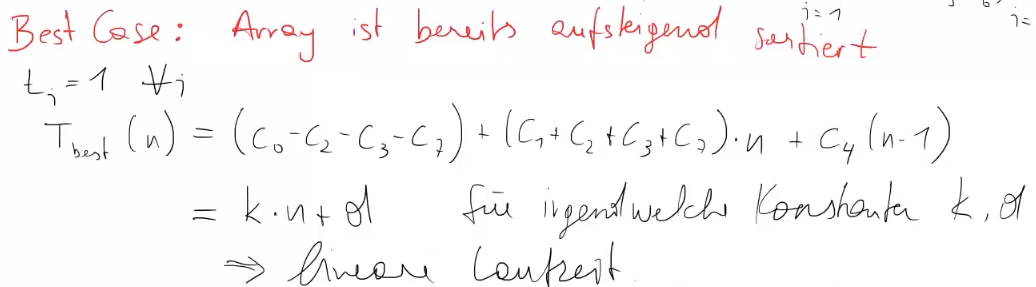 j=1
j=
Best Case: Array ist bereits aufsteigend sortiert
t_j = 1 ∀j
T_best (n) = (C_0 - C_2 - C_3 - C_7) + (C_1 + C_2 + C_3 + C_7) · n + C_4 (n-1)
= k · n + d für irgendwelche Konstanten k, d
⇒ lineare Laufzeit.